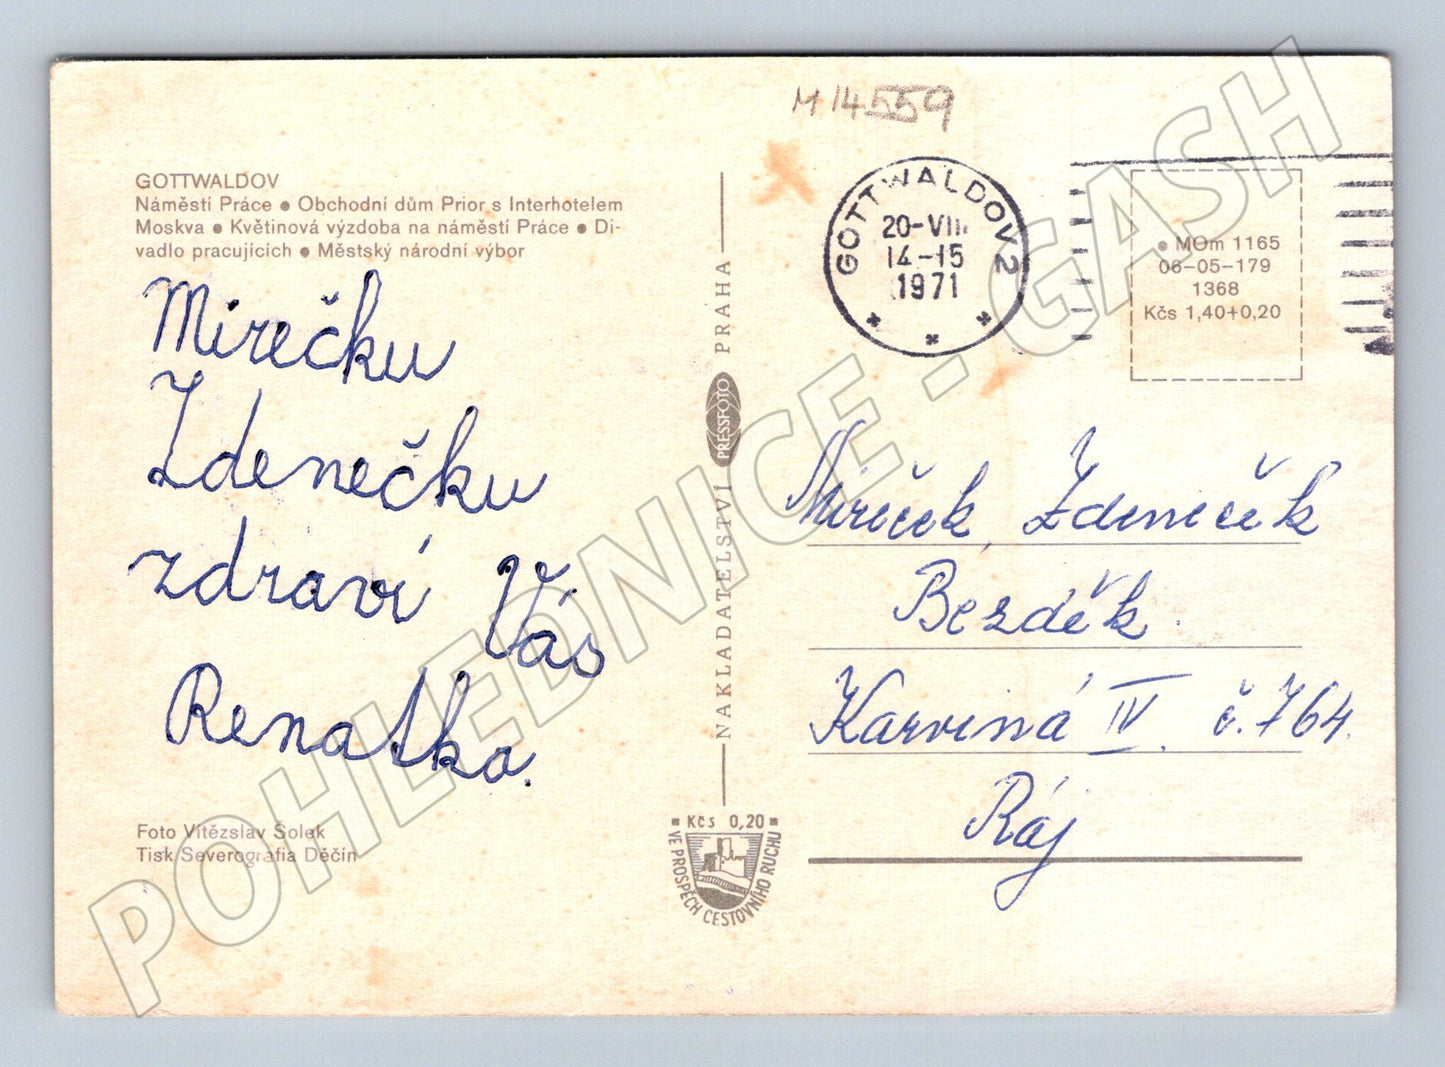 M 14559
GOTTWALDOV
Náměstí Práce ● Obchodní dům Prior s Interhotelem
Moskva ● Květinová výzdoba na náměstí Práce ● Di-
vadlo pracujících ● Městský národní výbor
Mirečku
Zdenečku
zdraví Vás
Renatka.
Foto Vítězslav Šolek
Tisk Severografia Děčín
NAKLADATELSTVÍ PRESSFOTO PRAHA
Kčs 0,20
VE PROSPĚCH CESTOVNÍHO RUCHU
GOTTWALDOV 2
20-VIII
14-15
1971
● MOm 1165
06-05-179
1368
Kčs 1,40+0,20
Mireček, Zdeneček
Bezděk.
Karviná IV. č. 764.
Ráj
POHLEDNICE - GASH